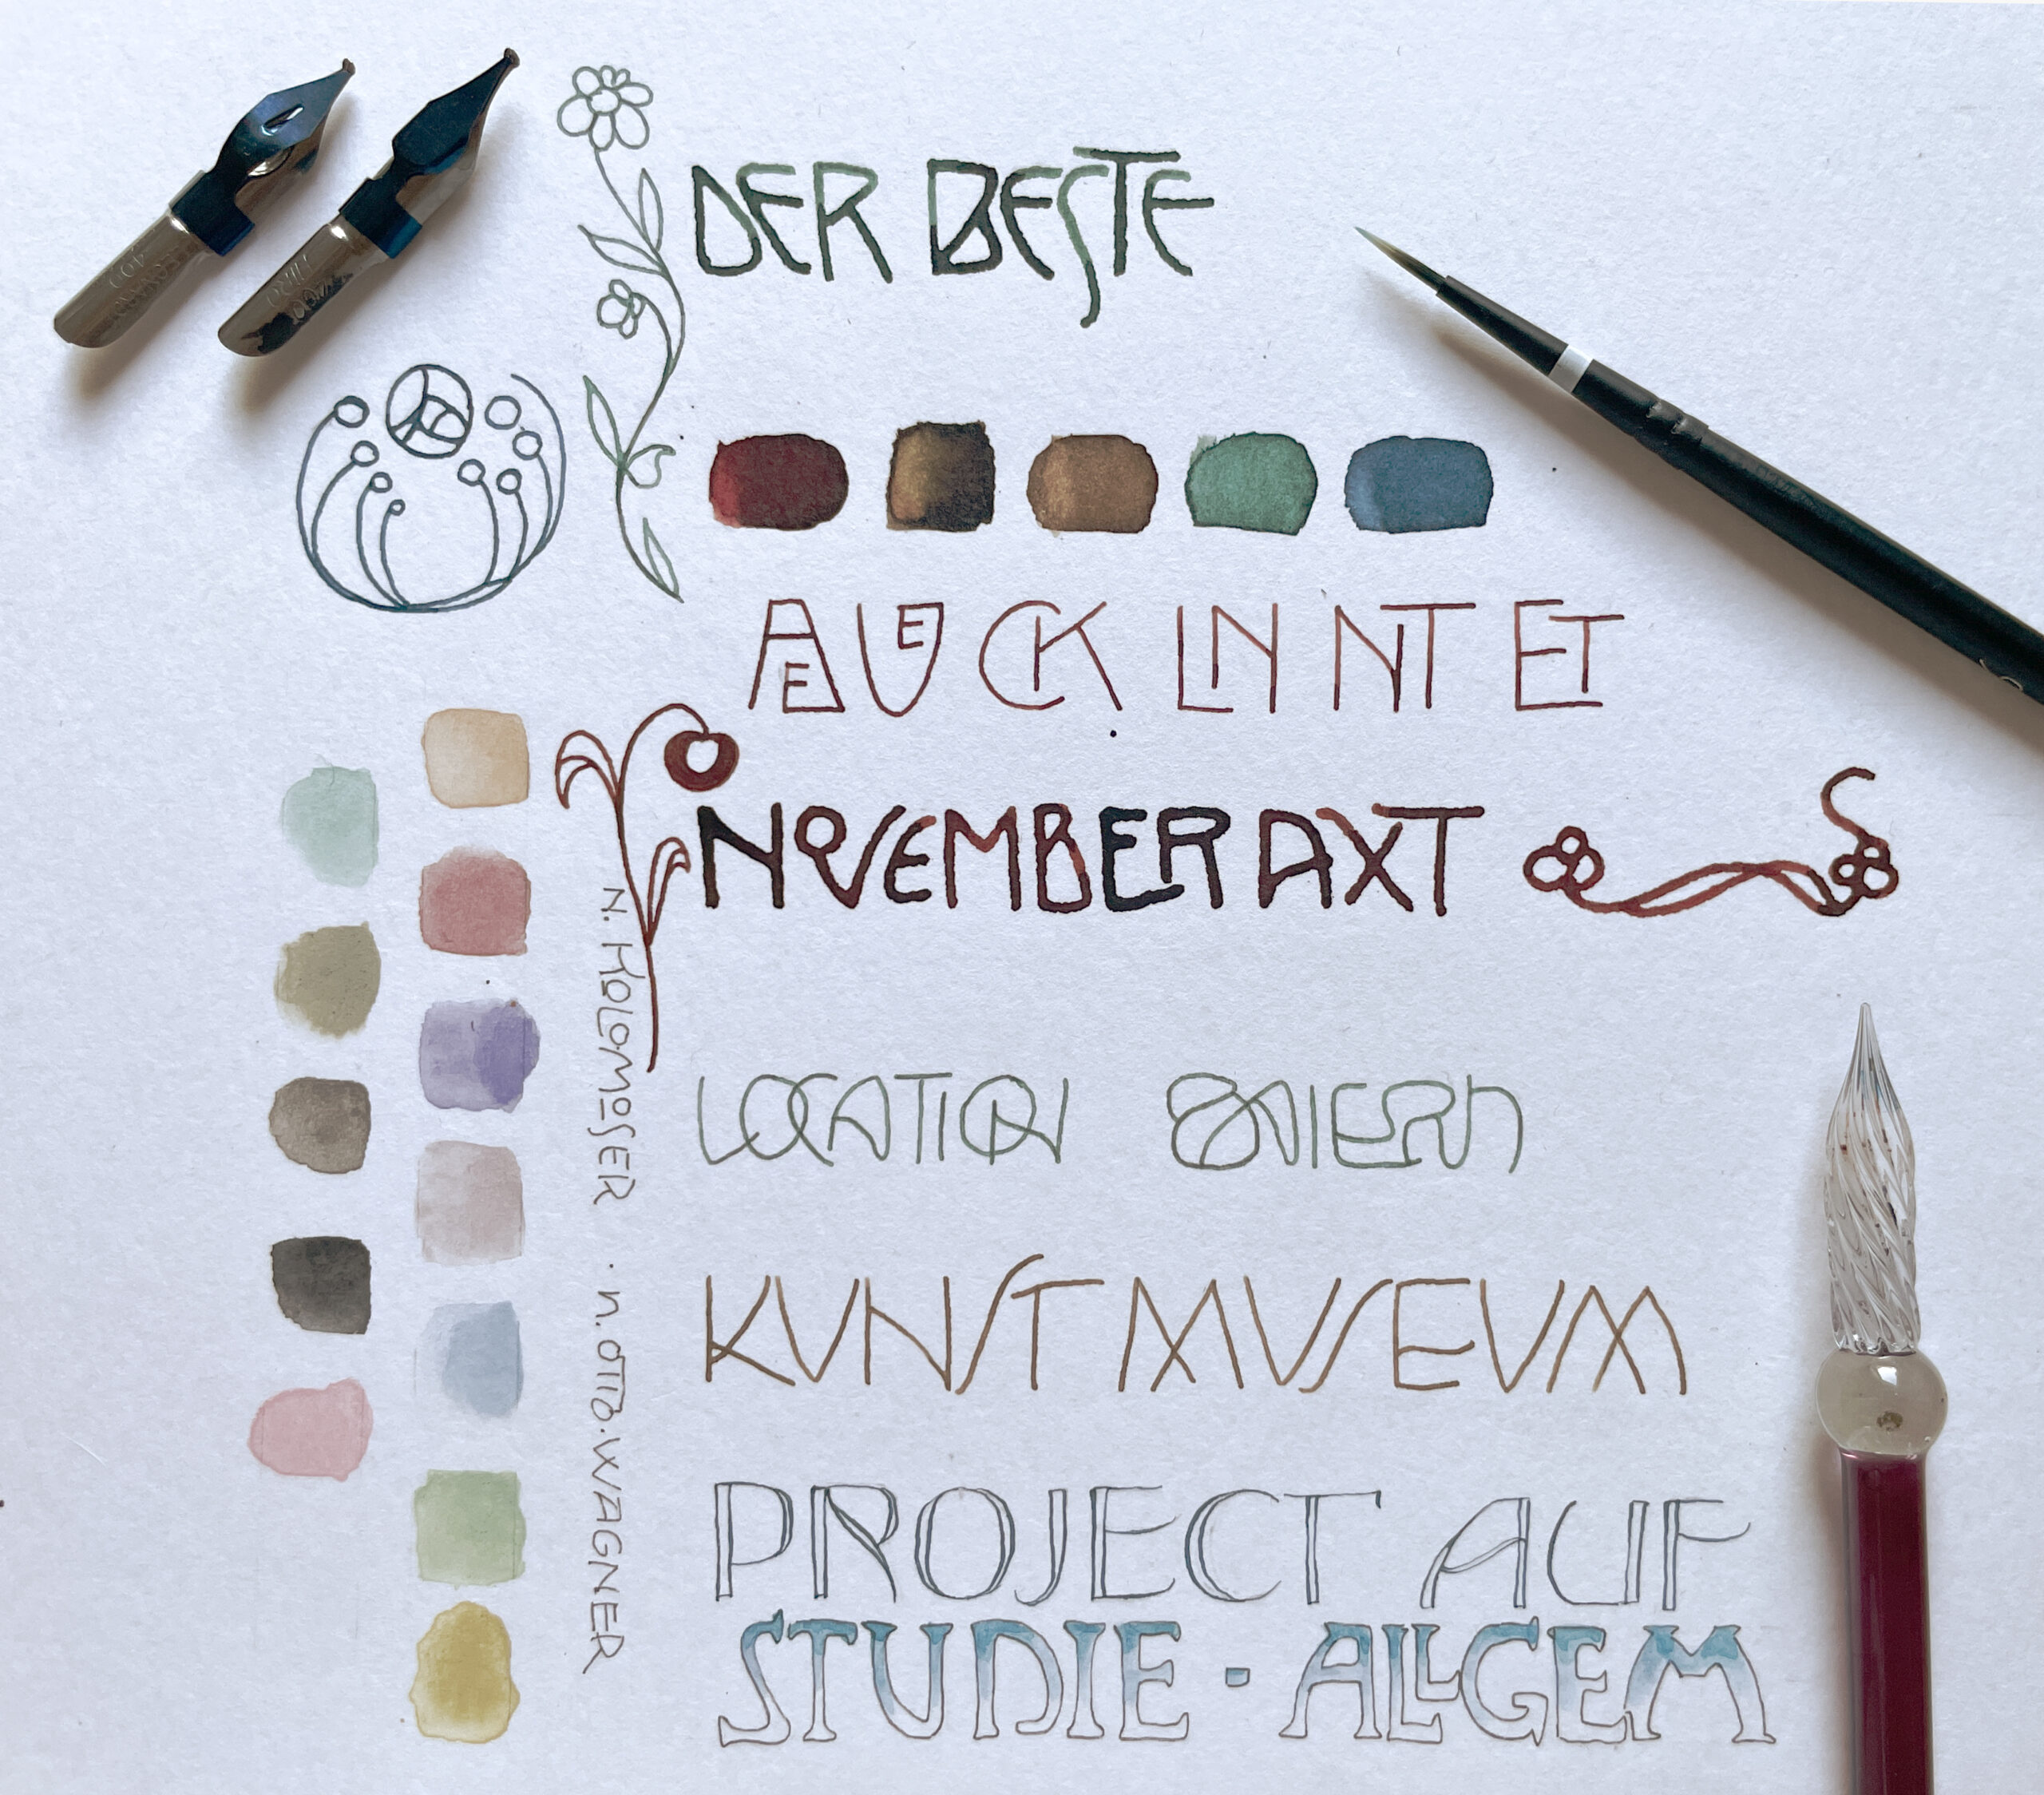 DER BESTE
AE UE CK LN NT ET
NOVEMBER AXT
N. KOLOMOSER · N. OTTO. WAGNER
LOCATION BAYERN
KUNST MUSEUM
PROJECT AUF
STUDIE · ALLGEM